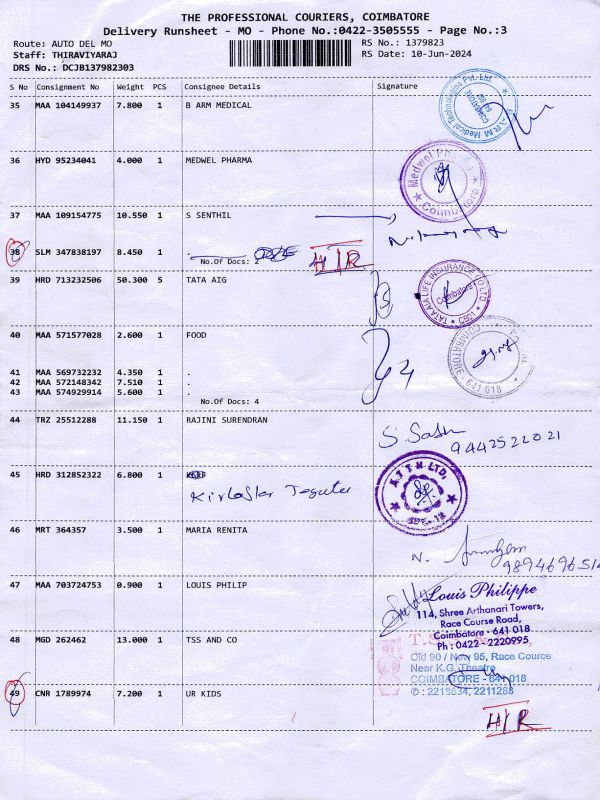 THE PROFESSIONAL COURIERS, COIMBATORE
Delivery Runsheet - MO - Phone No.:0422-3505555 - Page No.:3
Route: AUTO DEL MO
RS No.: 1379823
Staff: THIRAVIYARAJ
RS Date: 10-Jun-2024
DRS No.: DCJB137982303
S No Consignment No Weight PCS Consignee Details Signature
35 MAA 104149937 7.800 1 B ARM MEDICAL
COIMBATORE
36 HYD 95234041 4.000 1 MEDWEL PHARMA
Coimbatore
37 MAA 109154775 10.550 1 S SENTHIL
38 SLM 347838197 8.450 1
No.Of Docs: 2
H/R
39 HRD 713232506 50.300 5 TATA AIG
TATA AIA LIFE INSURANCE CO LTD
Coimbatore
40 MAA 571577028 2.600 1 FOOD
COIMBATORE
641 018
41 MAA 569732232 4.350 1 .
42 MAA 572148342 7.510 1 .
43 MAA 574929914 5.600 1 .
No.Of Docs: 4
44 TRZ 25512288 11.150 1 RAJINI SURENDRAN
9442522021
45 HRD 312852322 6.800 1
46 MRT 364357 3.500 1 MARIA RENITA
N.
47 MAA 703724753 0.900 1 LOUIS PHILIP
Louis Philippe
114, Shree Arthanari Towers,
Race Course Road,
Coimbatore - 641 018
Ph : 0422 - 2220995
48 MGD 262462 13.000 1 TSS AND CO
Old 90 / New 95, Race Cource
Near K.G. Theatre
COIMBATORE - 641 018
49 CNR 1789974 7.200 1 UR KIDS
H/R